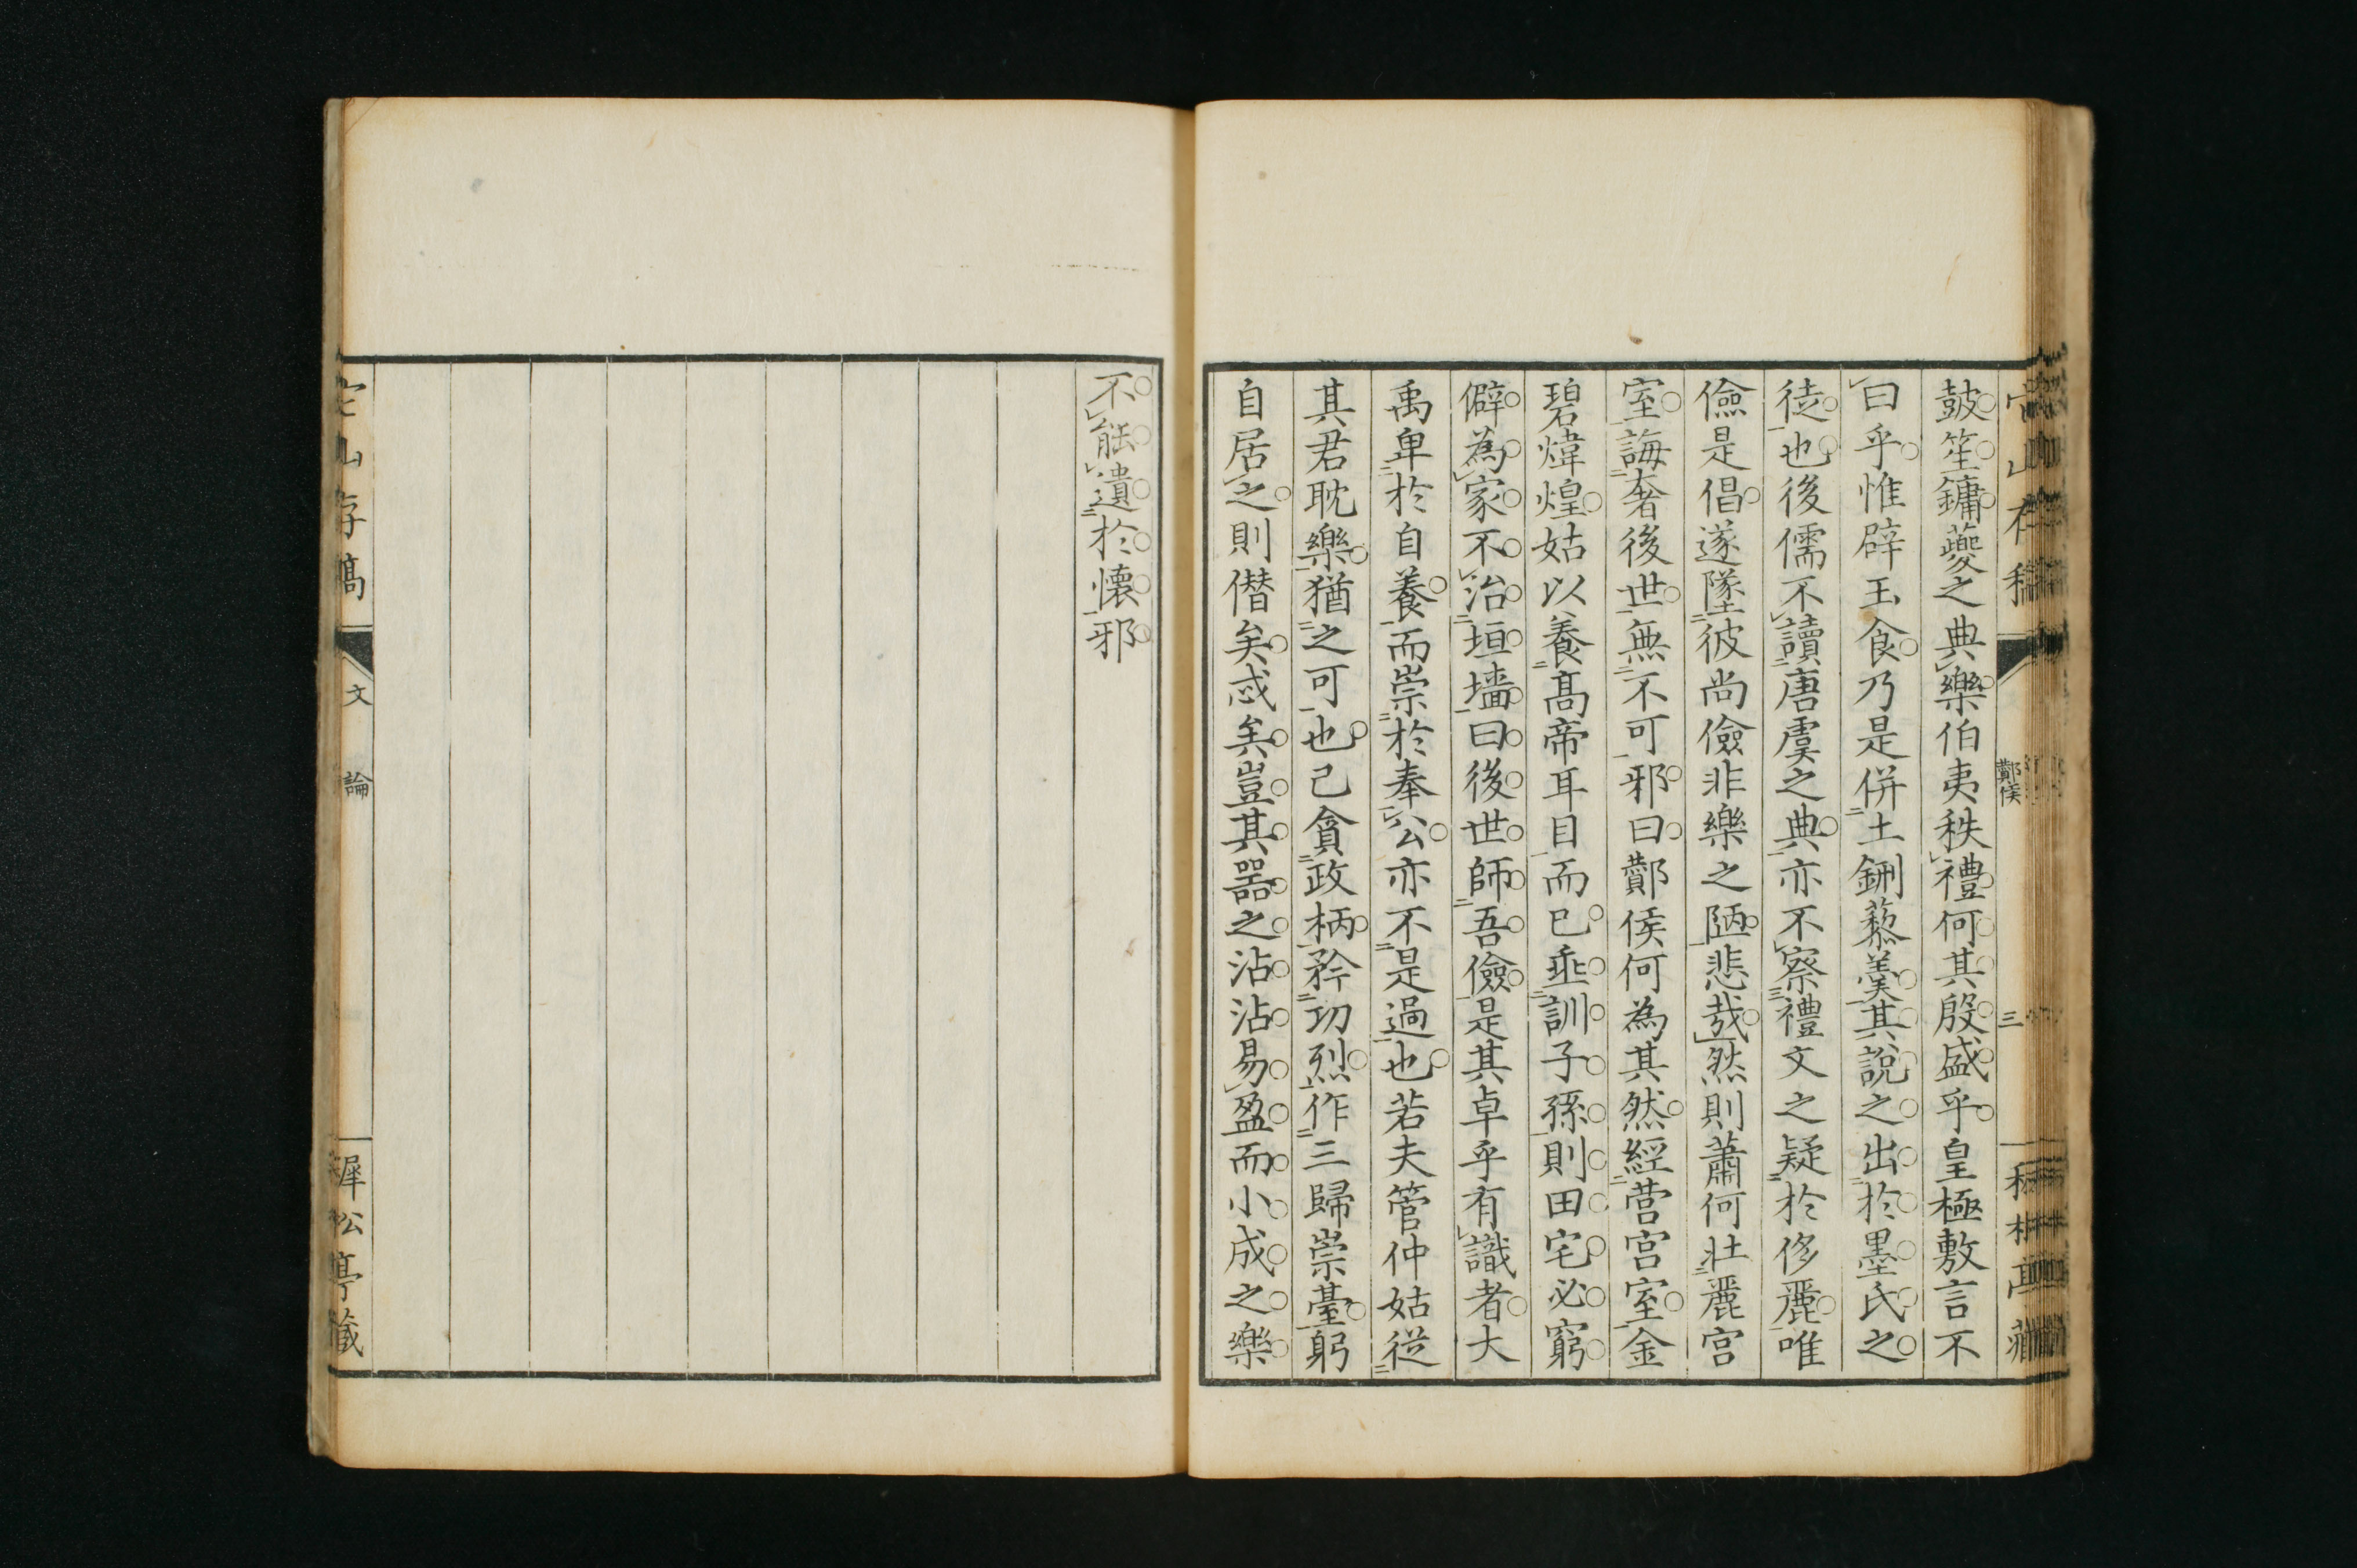 鼓笙鏞夔之典樂伯夷秩禮何其殷盛乎皇極敷言不
曰乎惟辟玉食乃是併土鉶藜羹其說之出於墨氏之
徒也後儒不讀唐虞之典亦不察禮文之疑於侈麗唯
儉是倡遂墜彼尚儉非樂之陋悲哉然則蕭何壯麗宮
室誨奢後世無不可邪曰酇侯何為其然經营宮室金
碧煒煌姑以養高帝耳目而已垂訓子孫則田宅必窮
僻為家不治垣墻曰後世師吾儉是其卓乎有識者大
禹卑於自養而崇於奉公亦不是過也若夫管仲姑從
其君耽樂猶之可也己貪政柄矜功烈作三歸崇臺躬
自居之則僭矣忒矣豈其器之沾沾易盈而小成之樂
酇侯
三
不能遺於懷邪
存稿
文
論
犀松亭藏